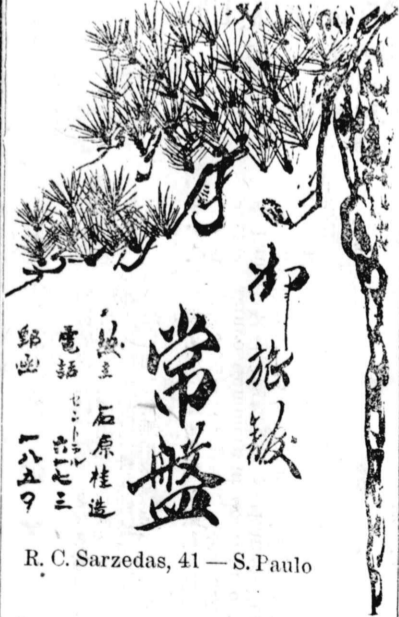 御旅館
常盤
館主 石原桂造
電話 セントラル 六一七三
郵函 一八五九
R. C. Sarzedas, 41 — S. Paulo